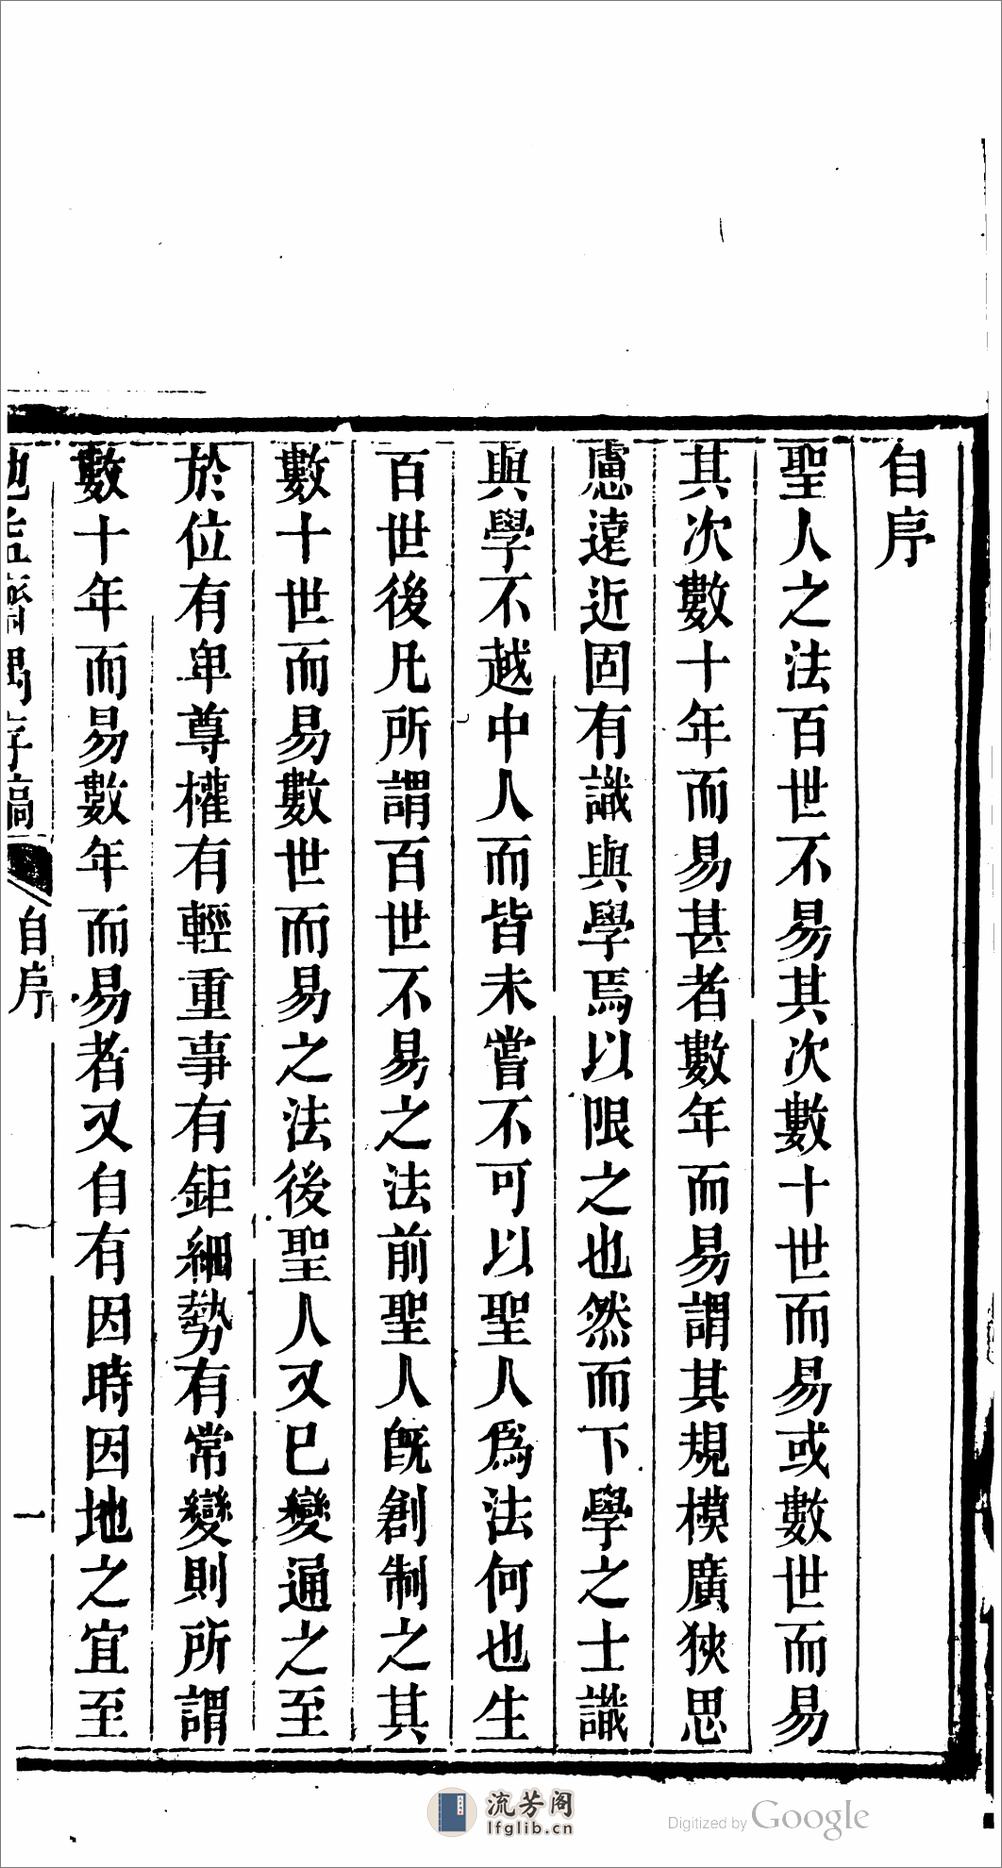 自序
聖人之法百世不易其次數十世而易或數世而易
其次數十年而易甚者數年而易謂其規模廣狹思
慮遠近固有識與學焉以限之也然而下學之士識
與學不越中人而皆未嘗不可以聖人爲法何也生
百世後凡所謂百世不易之法前聖人旣創制之其
數十世而易數世而易之法後聖人又已變通之至
於位有卑尊權有輕重事有鉅細勢有常變則所謂
數十年而易數年而易者又自有因時因地之宜至
齋偶存稿
自序
一
流芳阁
lfglib.cn
Digitized by Google